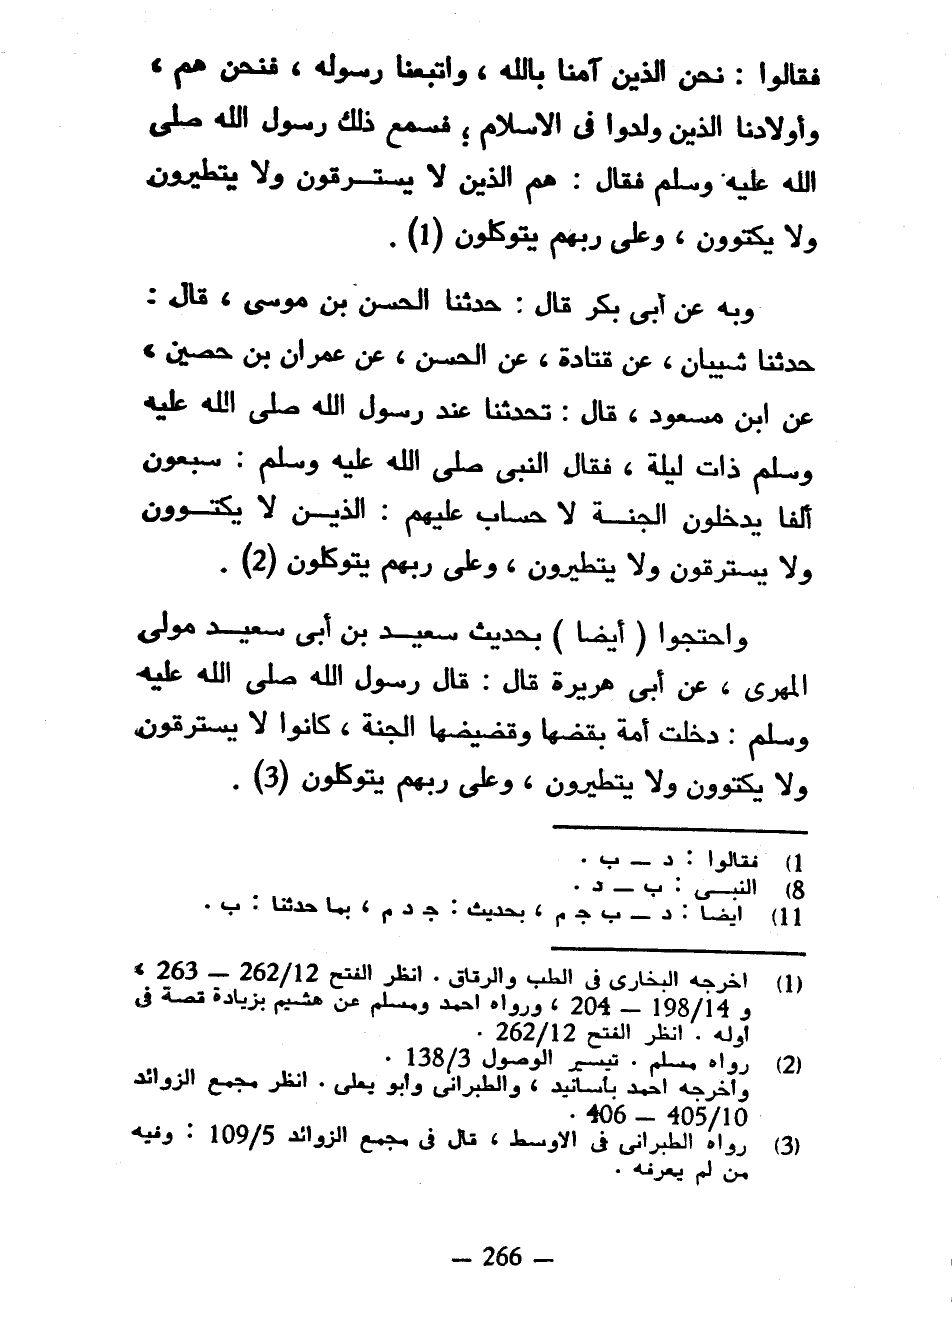 فقالوا : نحن الذين آمنا بالله ، واتبعنا رسوله ، فنحن هم ،
وأولادنا الذين ولدوا فى الاسلام ؛ فسمع ذلك رسول الله صلى
الله عليه وسلم فقال : هم الذين لا يسترقون ولا يتطيرون
ولا يكتوون ، وعلى ربهم يتوكلون (1) .
وبه عن أبى بكر قال : حدثنا الحسن بن موسى ، قال :
حدثنا شيبان ، عن قتادة ، عن الحسن ، عن عمران بن حصين ،
عن ابن مسعود ، قال : تحدثنا عند رسول الله صلى الله عليه
وسلم ذات ليلة ، فقال النبى صلى الله عليه وسلم : سبعون
ألفا يدخلون الجنة لا حساب عليهم : الذين لا يكتوون
ولا يسترقون ولا يتطيرون ، وعلى ربهم يتوكلون (2) .
واحتجوا ( أيضا ) بحديث سعيد بن أبى سعيد مولى
المهرى ، عن أبى هريرة قال : قال رسول الله صلى الله عليه
وسلم : دخلت أمة بقضها وقضيضها الجنة ، كانوا لا يسترقون
ولا يكتوون ولا يتطيرون ، وعلى ربهم يتوكلون (3) .
1) فقالوا : د — ب .
8) النبى : ب — د .
11) ايضا : د — ب ج م ، بحديث : ج د م ، بما حدثنا : ب .
(1) اخرجه البخارى فى الطب والرقاق . انظر الفتح 262/12 — 263 ،
و 198/14 — 204 ، ورواه احمد ومسلم عن هشيم بزيادة قصة فى
أوله . انظر الفتح 262/12 .
(2) رواه مسلم . تيسير الوصول 138/3 .
وأخرجه احمد بأسانيد ، والطبرانى وأبو يعلى . انظر مجمع الزوائد
405/10 — 406 .
(3) رواه الطبرانى فى الاوسط ، قال فى مجمع الزوائد 109/5 : وفيه
من لم يعرفه .
— 266 —